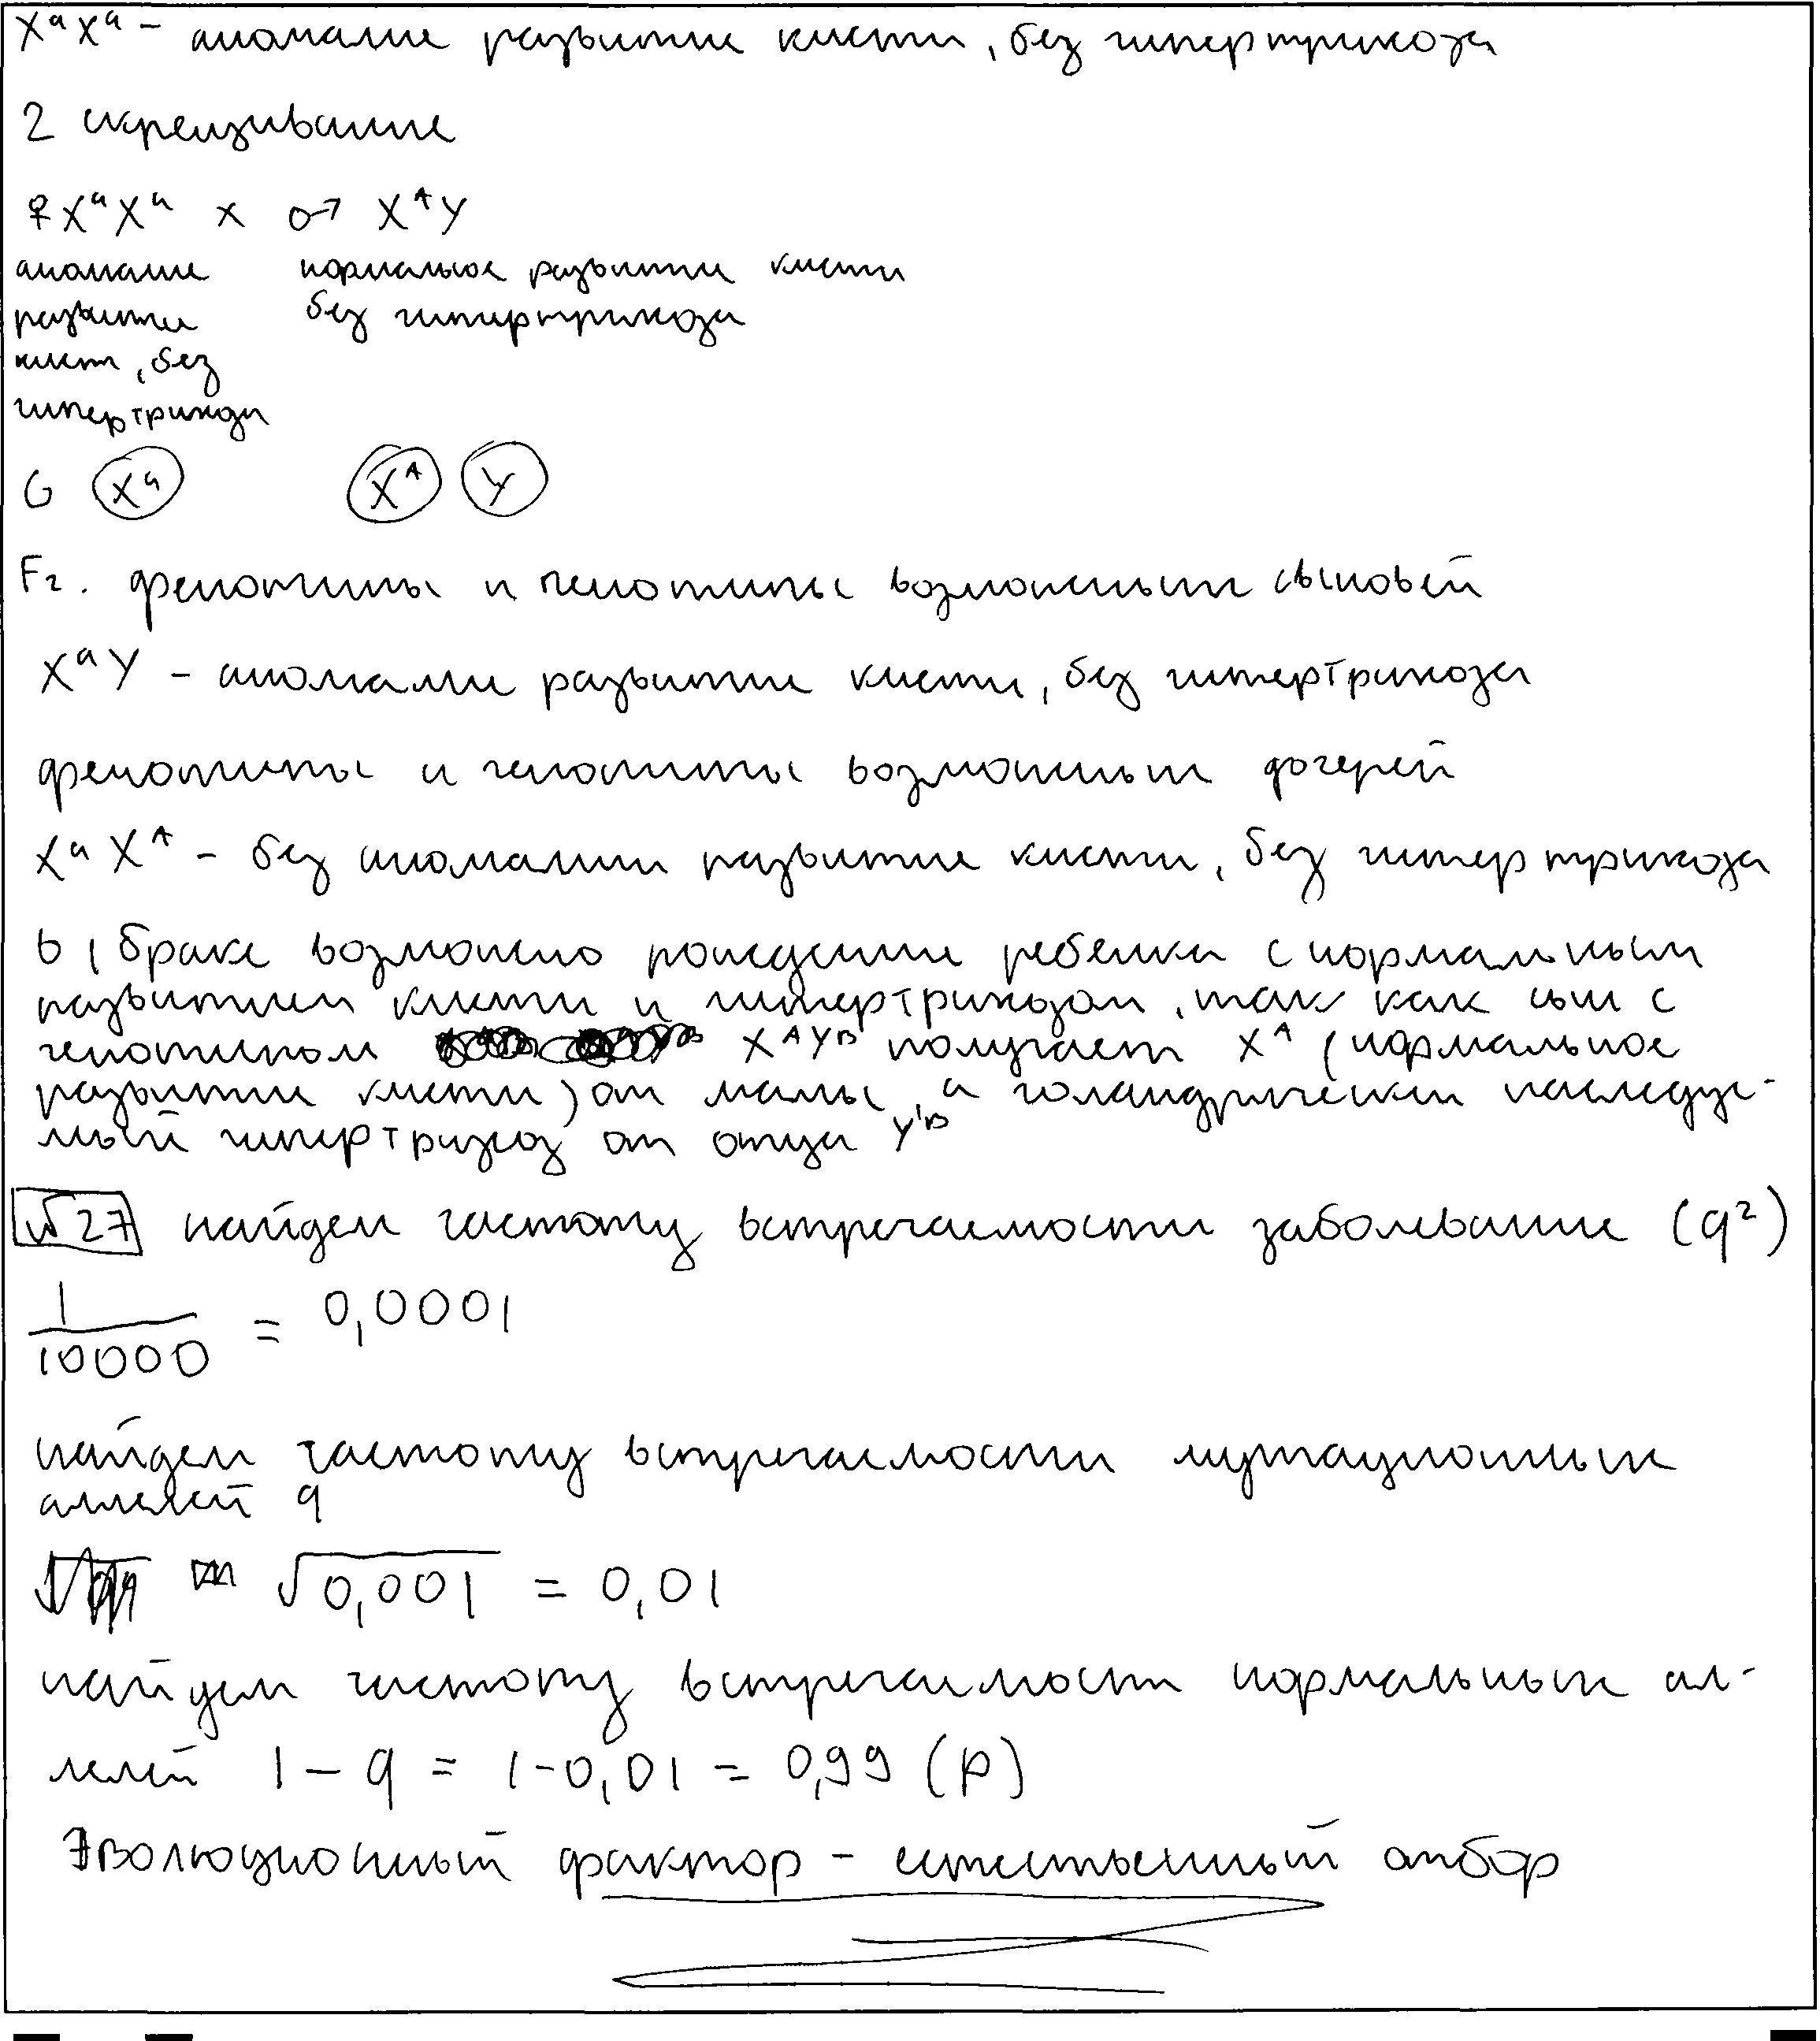 XᵃXᵃ - аномалие развитие кисти, без гипертрихоза
2 скрещивание
♀XᵃXᵃ x ♂ XᴬY
аномалие нормальное развитие кисти
развитие без гипертрихоза
кист, без
гипертрихоза
G Xᵃ Xᴬ Y
F₂. фенотипы и генотипы возможных сыновей
XᵃY - аномалии развитие кисти, без гипертрихоза
фенотипы и генотипы возможных дочерей
XᵃXᴬ - без аномалии развитие кисти, без гипертрихоза
в 1 браке возможно рождение ребенка с нормальным
развитием кисти и гипертрихозом, так как сын с
генотипом XᴬYᴮ получает Xᴬ (нормальное
развитие кисти) от мамы, а голандрически наследуе-
мый гипертрихоз от отца Yᴮ
№27 найдем частоту встречаемости заболевание (q²)
1/10000 = 0,0001
найдем частоту встречаемости мутационных
аллелей q
√0,001 = 0,01
найдем частоту встречаемость нормальных ал-
лелей 1 - q = 1-0,01 = 0,99 (p)
Эволюционный фактор - естественный отбор